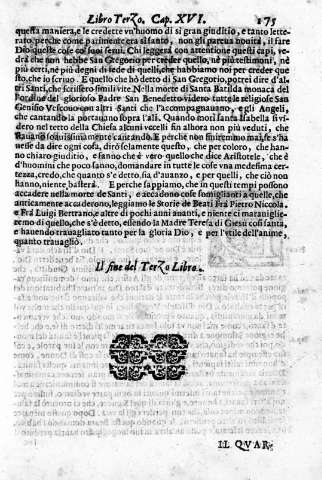 Libro Terzo. Cap. XVI. 175
questa maniera, e le credette vn'huomo di sì gran giudicio, e tanto lette-
rato, perche come parimente era sì santo, non gli pareua nouità, il fare
Dio queste cose co' suoi serui. Chi leggerà con attentione questi capi, ve-
drà che non hebbe San Gregorio per creder quello, nè più testimoni, nè
più certi, nè più degni di fede di quelli, che habbiamo noi per creder que
sto, che io scriuo. E quello che hò detto di San Gregorio, potrei dire d'al-
tri Santi, che scrissero simili vite. Nella morte di Santa Batilda monaca del
l'ordine del glorioso Padre San Benedetto videro tutte le religiose San
Genisio Vescouo con altri Santi che l'accompagnauano, e gli Angeli,
che cantando la portauano sopra l'ali. Quando morì santa Isabella si vi-
dero nel tetto della Chiesa alcuni vccelli fin allhora non più veduti, che
stauano soauissimamente cantando. E perche non finiremmo mai, se s'ha
uesse da dire ogni cosa, dirò solamente questo, che per coloro, che han-
no chiaro giudicio, e sanno che è vero quello che dice Aristotele, che è
d'huomini che poco sanno, domandare in tutte le cose vna medesima cer-
tezza, credo, che quanto s'è detto, sia d'auanzo, e per quelli, che ciò non
hanno, niente basterà. E perche sappiamo, che in questi tempi possono
accadere nella morte de Santi, e accadono cose somiglianti a quelle, che
anticamente accaderono, leggiamo le Storie de Beati Frà Pietro Niccola,
e Frà Luigi Bertrando, altre di pochi anni auanti, e niente ci marauiglie-
remo di quello, che s'è detto, essendo la Madre Teresa di Giesù così santa,
e hauendo trauagliato tanto per la gloria Dio, e per l'vtile dell'anime,
quanto trauagliò.
Il fine del Terzo Libro.
IL QVAR-